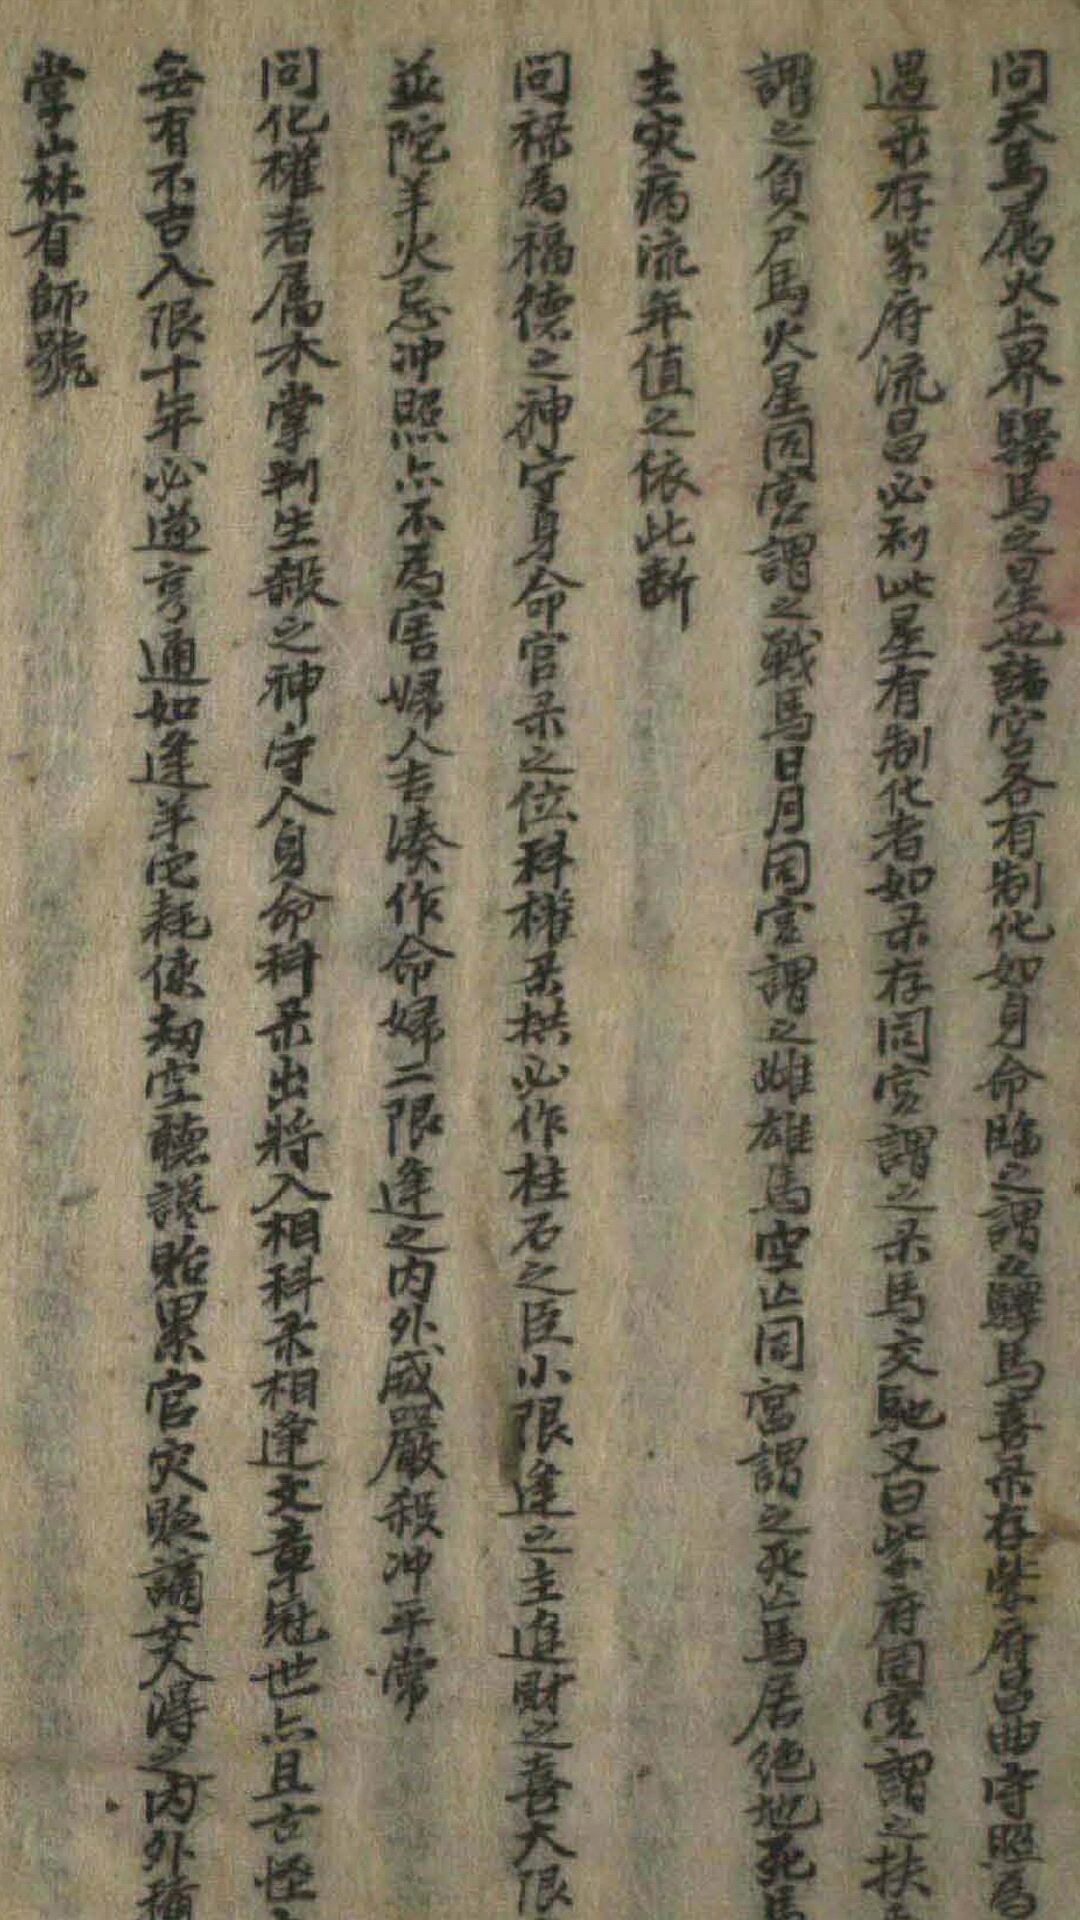 問天馬属火上界驛馬之星也諸宮各有制化如身命臨之謂之驛馬喜彔存紫府昌曲守照為
遇彔存紫府流昌必利此星有制化者如彔存同宮謂之彔馬交馳又曰紫府同宮謂之扶
謂之負尸馬火星同宮謂之戰馬日月同宮謂之雌雄馬空亾同宮謂之死亾馬居绝地死馬
主灾病流年值之依此断
問禄為福德之神守身命官彔之位科權彔拱必作柱石之臣小限逢之主進財之喜大限
並陀羊火忌冲照亦不為害婦人吉湊作命婦二限逢之内外威嚴殺冲平常
問化權者属木掌判生殺之神守人身命科彔出將入相科彔相逢文章冠世亦且古怪
每有不吉入限十年必遂亨通如逢羊陀耗使劫空聽讒貽累官灾貶謫女人得之内外積
掌山林有師號